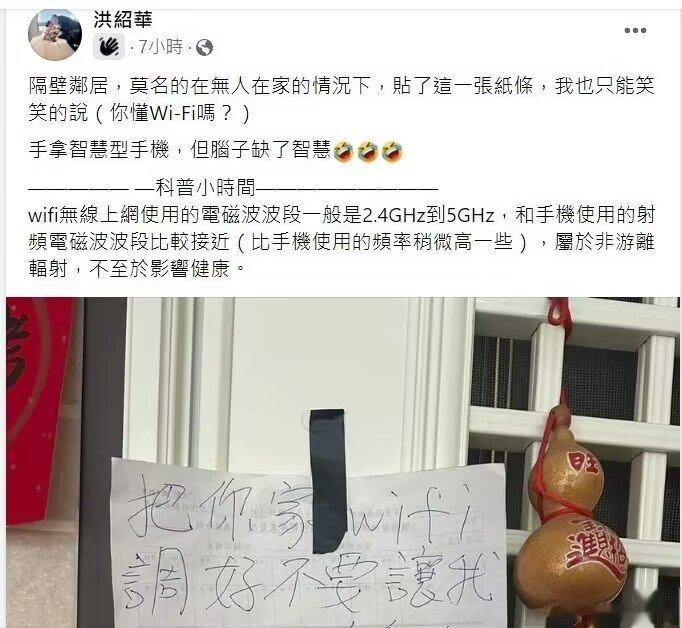 洪紹華
· 7小時 ·
隔壁鄰居，莫名的在無人在家的情況下，貼了這一張紙條，我也只能笑
笑的說（你懂Wi-Fi嗎？）
手拿智慧型手機，但腦子缺了智慧🤣🤣🤣
————— —科普小時間—————————
wifi無線上網使用的電磁波波段一般是2.4GHz到5GHz，和手機使用的射
頻電磁波波段比較接近（比手機使用的頻率稍微高一些），屬於非游離
輻射，不至於影響健康。
把你家wifi
調好不要讓我
旺